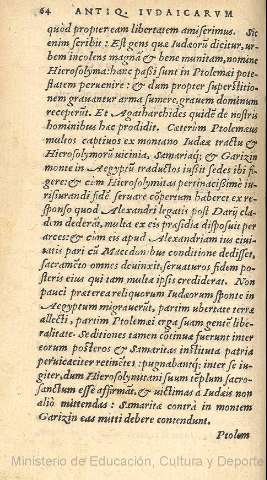 64 ANTIQ. IVDAICARVM
quòd propter eam libertatem amiserimus. Sic
enim scribit: Est gens quæ Iudæorũ dicitur, ur-
bem incolens magnã & bene munitam, nomine
Hierosolyma: hanc passi sunt in Ptolemæi pote-
statem peruenire: & dum propter superstitio-
nem grauantur arma sumere, grauem dominum
receperũt. Et Agatharchides quidẽ de nostris
hominibus hæc prodidit. Cæterùm Ptolemæus
multos captiuos ex montano Iudææ tractu &
Hierosolymorũ uicinia, Samariaq; & Garizin
monte in Aegyptũ traductos iussit sedes ibi fi-
gere: & cùm Hierosolymitas pertinacissimè iu-
risiurandi fidẽ seruare cõpertum haberet ex re-
sponso quod Alexandri legatis post Darij cla-
dem dederãt, multa ex eis præsidia disposuit per
arces: & cùm eis apud Alexandriam ius ciui-
tatis pari cũ Macedonibus conditione dedisset,
sacramẽto omnes deuinxit, seruaturos fidem po-
steris eius qui tam multa ipsis crediderat. Non
pauci præterea reliquorum Iudæorum sponte in
Aegyptum migrauerũt, partim ubertate terræ
allecti, partim Ptolemæi erga suam gentẽ libe-
ralitate. Seditiones tamen cõtinuæ fuerunt inter
eorum posteros & Samaritas instituta patria
peruicaciter retinẽtes: pugnabantq; inter se iu-
giter, dum Hierosolymitani suum tẽplum sacro-
sanctum esse affirmãt, & uictimas à Iudæis non
aliò mittendas: Samaritæ contrà in montem
Garizin eas mitti debere contendunt.
Ptolem
Ministerio de Educación, Cultura y Deporte